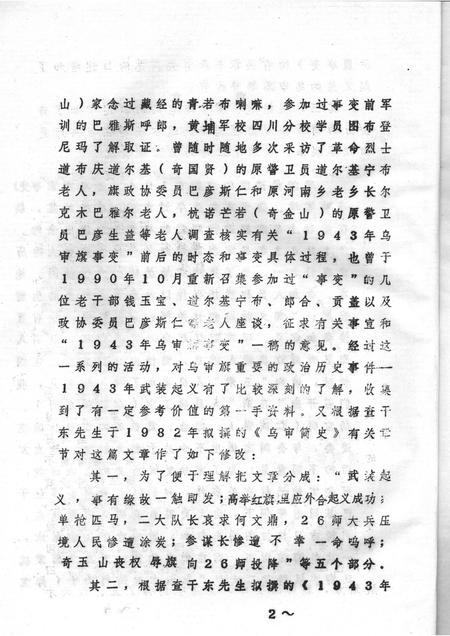 山）家念过藏经的青若布喇嘛，参加过事变前军
训的巴雅斯呼郎，黄埔军校四川分校学员图布登
尼玛了解取证。曾随时随地多次采访了革命烈士
道布庆道尔基（奇国贤）的原警卫员道尔基宁布
老人，旗政协委员巴彦斯仁和原河南乡老乡长尔
克木巴雅尔老人，杭诺芒若（奇金山）的原警卫
员巴彦生益等老人调查核实有关“1943年乌
审旗事变”前后的时态和事变具体过程，也曾于
1990年10月重新召集参加过“事变”的几
位老干部钱玉宝、道尔基宁布、郎合、贡盖以及
政协委员巴彦斯仁等老人座谈，征求有关事宜和
“1943年乌审旗事变”一稿的意见。经过这
一系列的活动，对乌审旗重要的政治历史事件—
1943年武装起义有了比较深刻的了解，收集
到了有一定参考价值的第一手资料。又根据查干
东先生于1982年拟撰的《乌审简史》有关章
节对这篇文章作了如下修改：
其一，为了便于理解把文章分成：“武装起
义，事有缘故一触即发；高举红旗，里应外合起义成功；
单抢匹马，二大队长哀求何文鼎，26师大兵压
境人民惨遭涂炭；参谋长惨遭不幸一命呜呼；
奇玉山丧权辱旗向26师投降”等五个部分。
其二，根据查干东先生拟撰的《1943年
2～